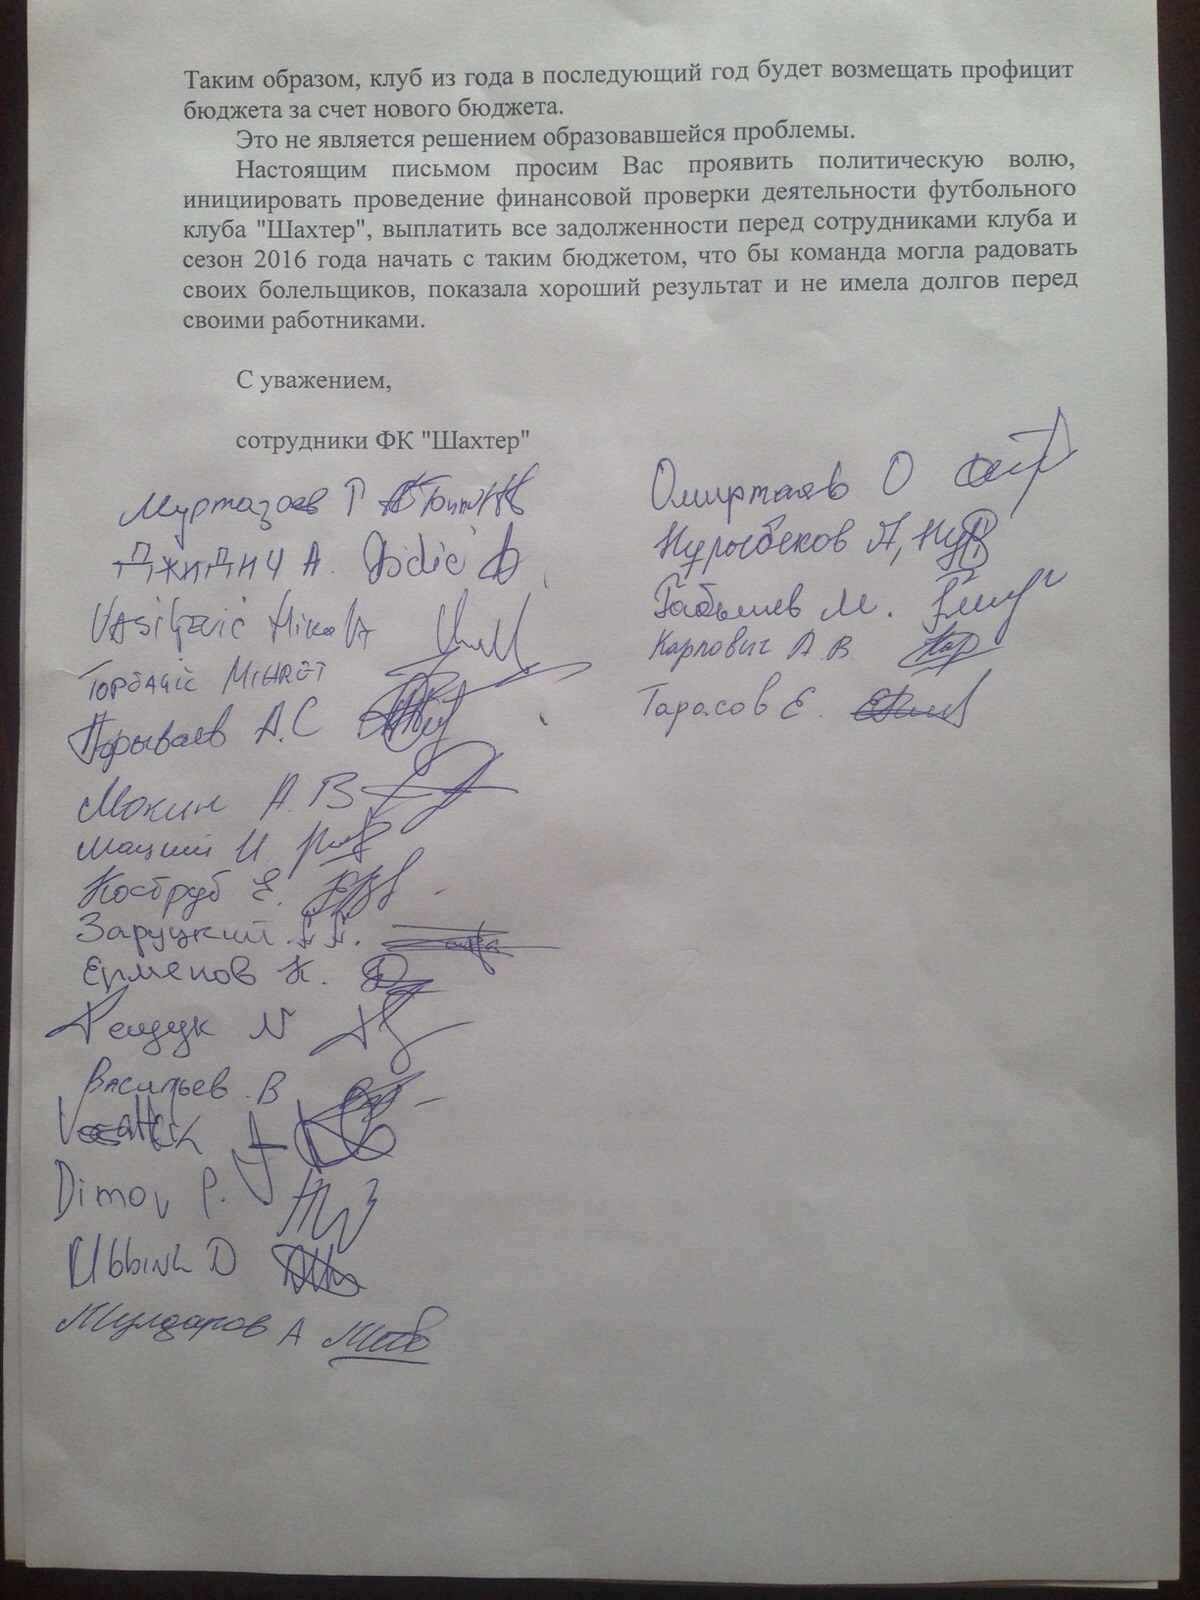 Таким образом, клуб из года в последующий год будет возмещать профицит
бюджета за счет нового бюджета.
Это не является решением образовавшейся проблемы.
Настоящим письмом просим Вас проявить политическую волю,
инициировать проведение финансовой проверки деятельности футбольного
клуба "Шахтер", выплатить все задолженности перед сотрудниками клуба и
сезон 2016 года начать с таким бюджетом, что бы команда могла радовать
своих болельщиков, показала хороший результат и не имела долгов перед
своими работниками.
С уважением,
сотрудники ФК "Шахтер"
Муртазаев Г
Джидич А. Đidić A
Vasiljević Nikola
Порываев А.С
Мокин А.В
Мацкий И.
Коструб Е.
Заруцкий
Ерменов К.
Васильев В
Dimov P.
Ubbink D
Мулдаров А
Омиртаев О
Нурыбеков А,
Габышев М.
Карпович А.В.
Тарасов Е.